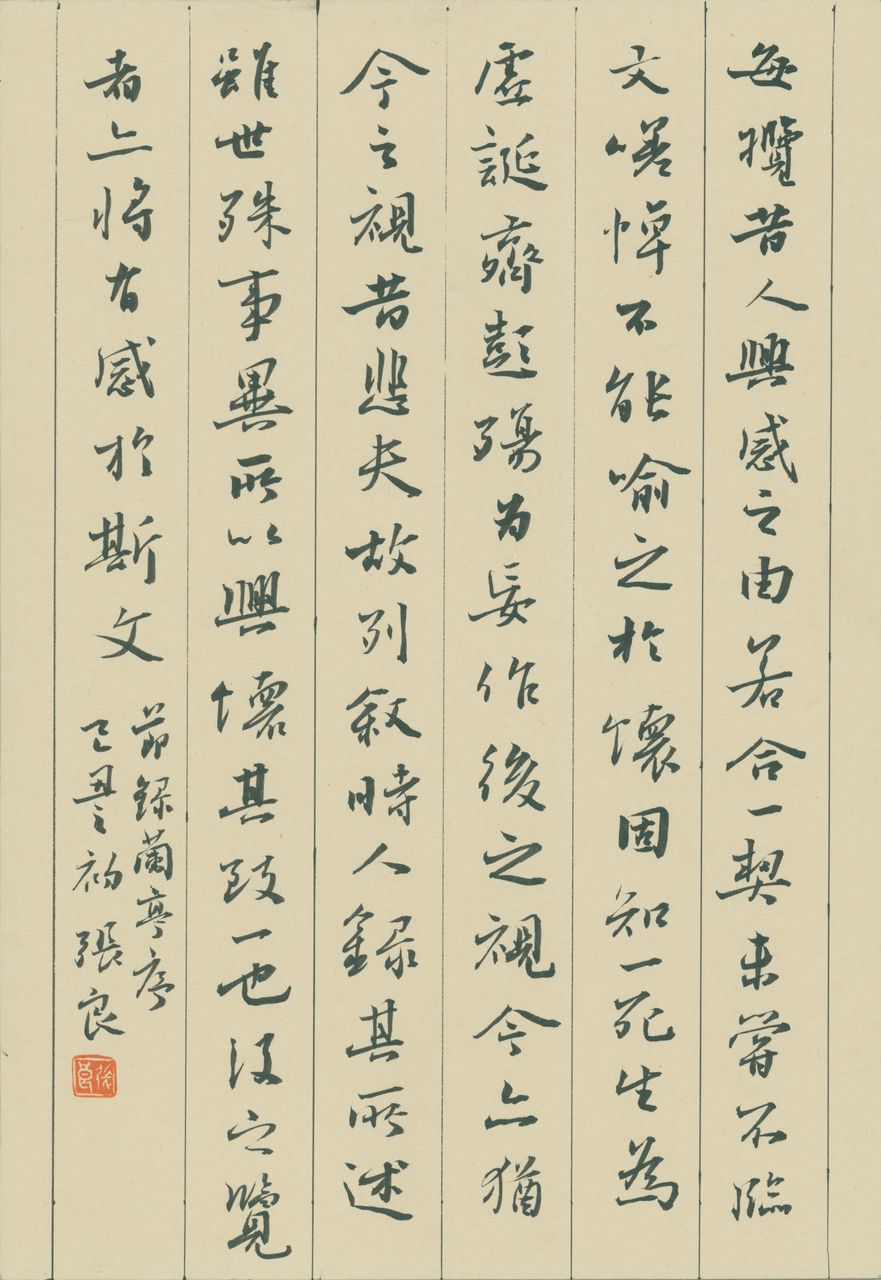 每攬昔人興感之由若合一契未嘗不臨
文嗟悼不能喻之於懷固知一死生為
虛誕齊彭殤为妄作後之視今亦猶
今之視昔悲夫故列敘時人錄其所述
雖世殊事異所以興懷其致一也後之覽
者亦将有感於斯文
節錄蘭亭序
己丑初張良
張良